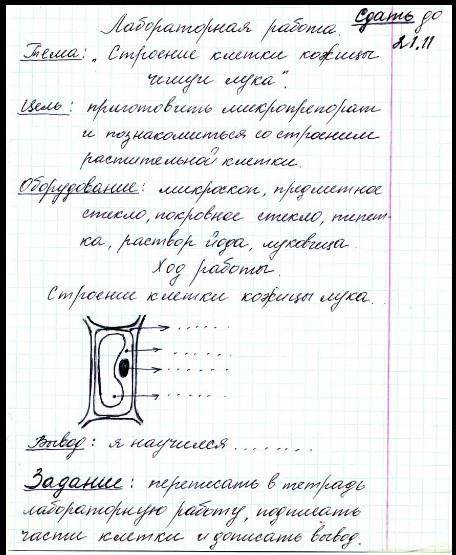 Лабораторная работа. Сдать до
21.11
Тема: „Строение клетки кожицы
чешуи лука".
Цель: приготовить микропрепарат
и познакомиться со строением
растительной клетки.
Оборудование: микроскоп, предметное
стекло, покровное стекло, пипет-
ка, раствор йода, луковица.
Ход работы.
Строение клетки кожицы лука.
......
......
......
......
Вывод: я научился ........
Задание: переписать в тетрадь
лабораторную работу, подписать
части клетки и дописать вывод.